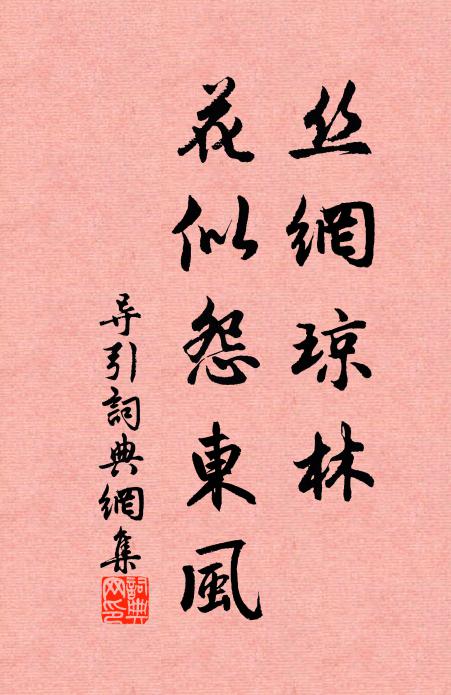 丝網琼林
花似怨東風
导引詞典網集
詞典网印